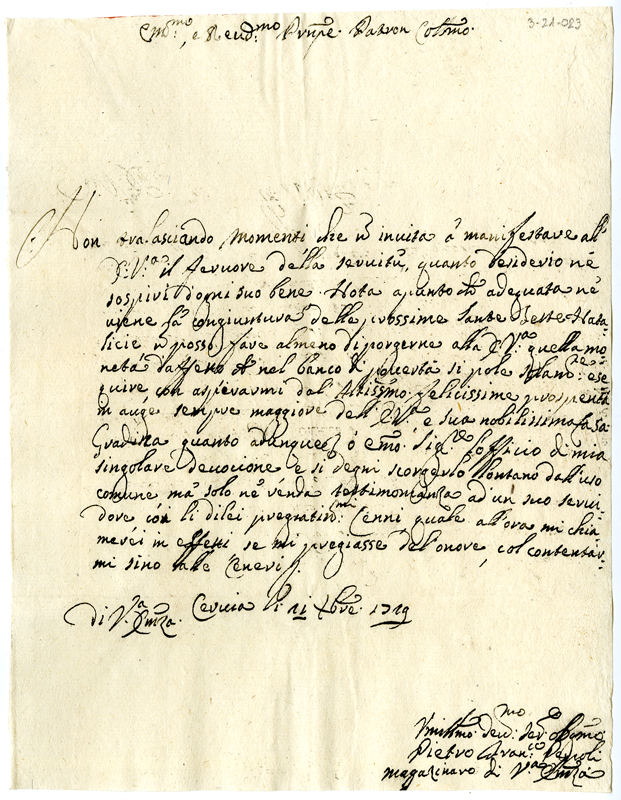 3-21-023
Em.mo, e Reud.mo Prnpe. Patron Colmo.
Non tralasciando momenti che ... invita à manifestare all'
... il feruore della seruitù, quanto desiderio nè
sospiri d'ogni suo bene. Nota apunto ... adequata nè
viene fà congiuntura delle prossime Sante Feste Nata
licie ... posso fare almeno di porgerne alla ... quella mo
neta d'affetto ... nel banco di pouertà si pole ... ese
quire con asperarmi dal' Altissmo. felicissime prosperità
in auge sempre maggiore dell' ... e sua nobilissima Casa
Gradisca quanto adunque ... ò Emo. Sig.re l'officio di mia
singolare deuocione e si degni scorgerlo llontano dall'uso
comune mà solo nè renda testimonianza ad un suo serui
dore con li dilei pregiatis.mi Cenni quale all'ora mi chia
merei in effetti se mi pregiasse del'onore, col contentar
mi sino alle Ceneri
di V.ra Emza. Ceruia li 11 Xbre. 1719
Vmilmo. deu.mo ser.e obbmo.
Pietro Fran.co ...
magazinaro di V.ra Emza.